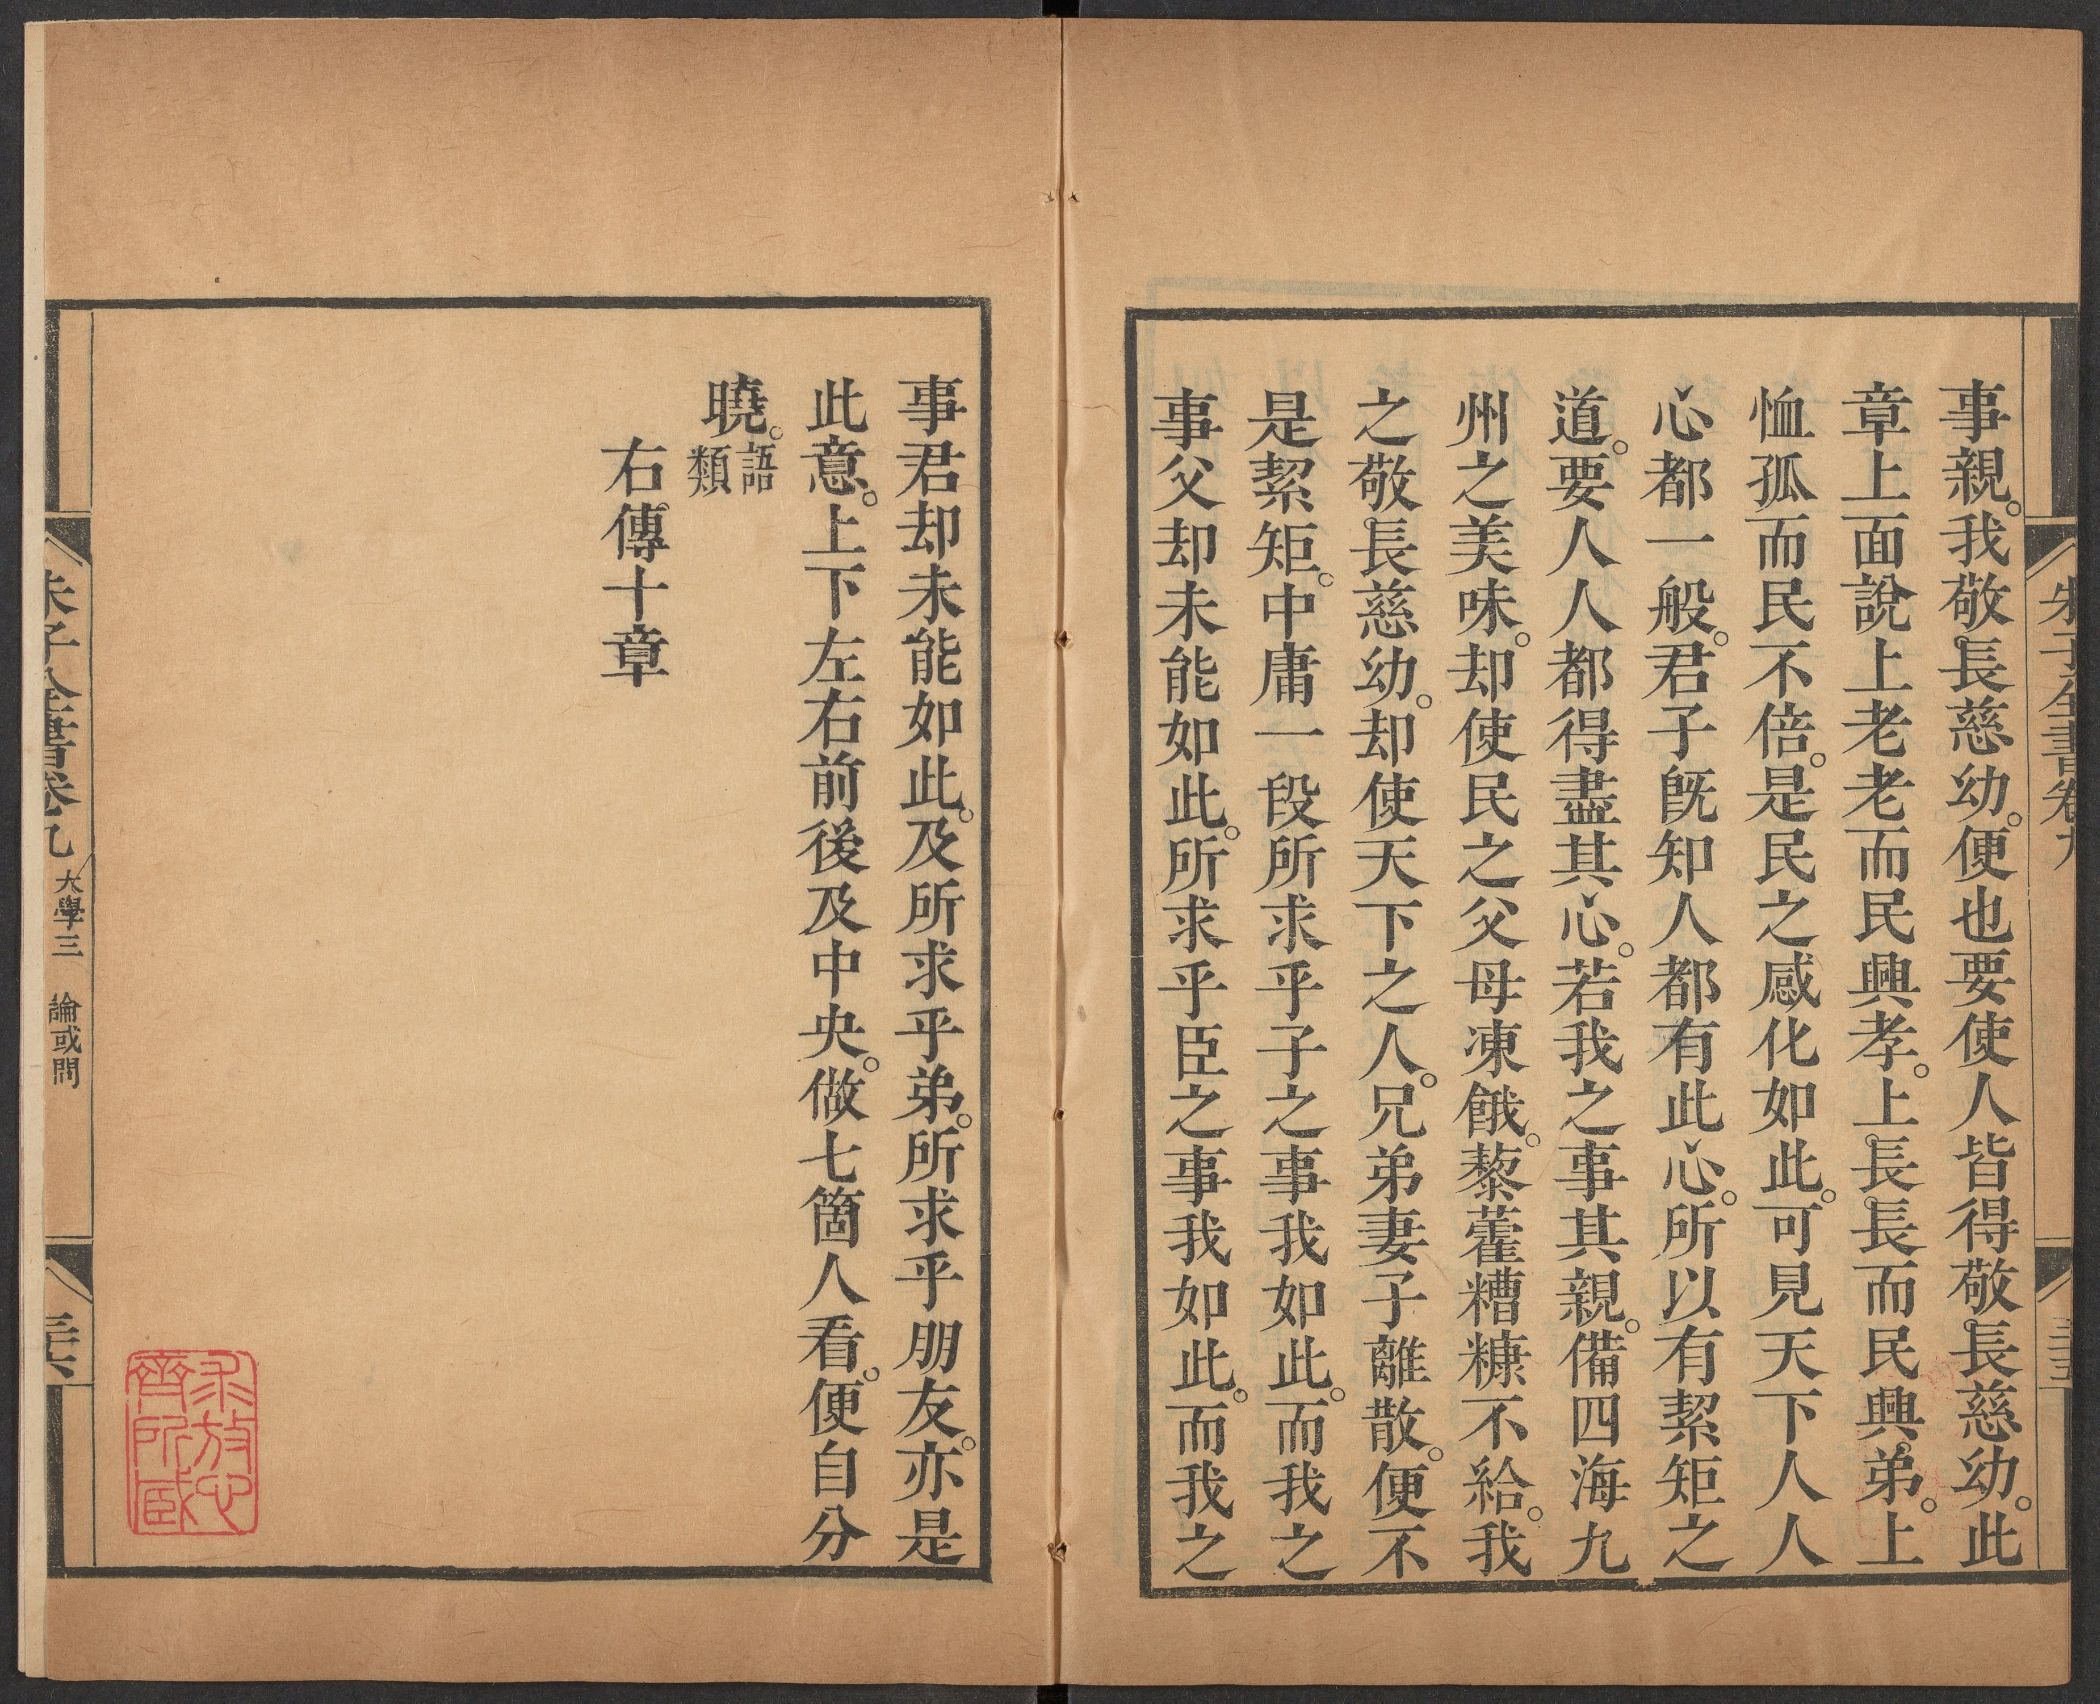 朱子全書卷九
三十五
事親。我敬長慈幼。便也要使人皆得敬長慈幼。此
章上面說上老老而民興孝。上長長而民興弟。上
恤孤而民不倍。是民之感化如此。可見天下人人
心都一般。君子旣知人都有此心。所以有絜矩之
道。要人人都得盡其心。若我之事其親。備四海九
州之美味。却使民之父母凍餓。藜藿糟糠不給。我
之敬長慈幼。却使天下之人。兄弟妻子離散。便不
是絜矩。中庸一段所求乎子之事我如此。而我之
事父却未能如此。所求乎臣之事我如此。而我之
事君却未能如此。及所求乎弟。所求乎朋友。亦是
此意。上下左右前後及中央。做七箇人看。便自分
曉。語類
右傳十章
朱子全書卷九 大學三 論或問
求放心
齋所臧